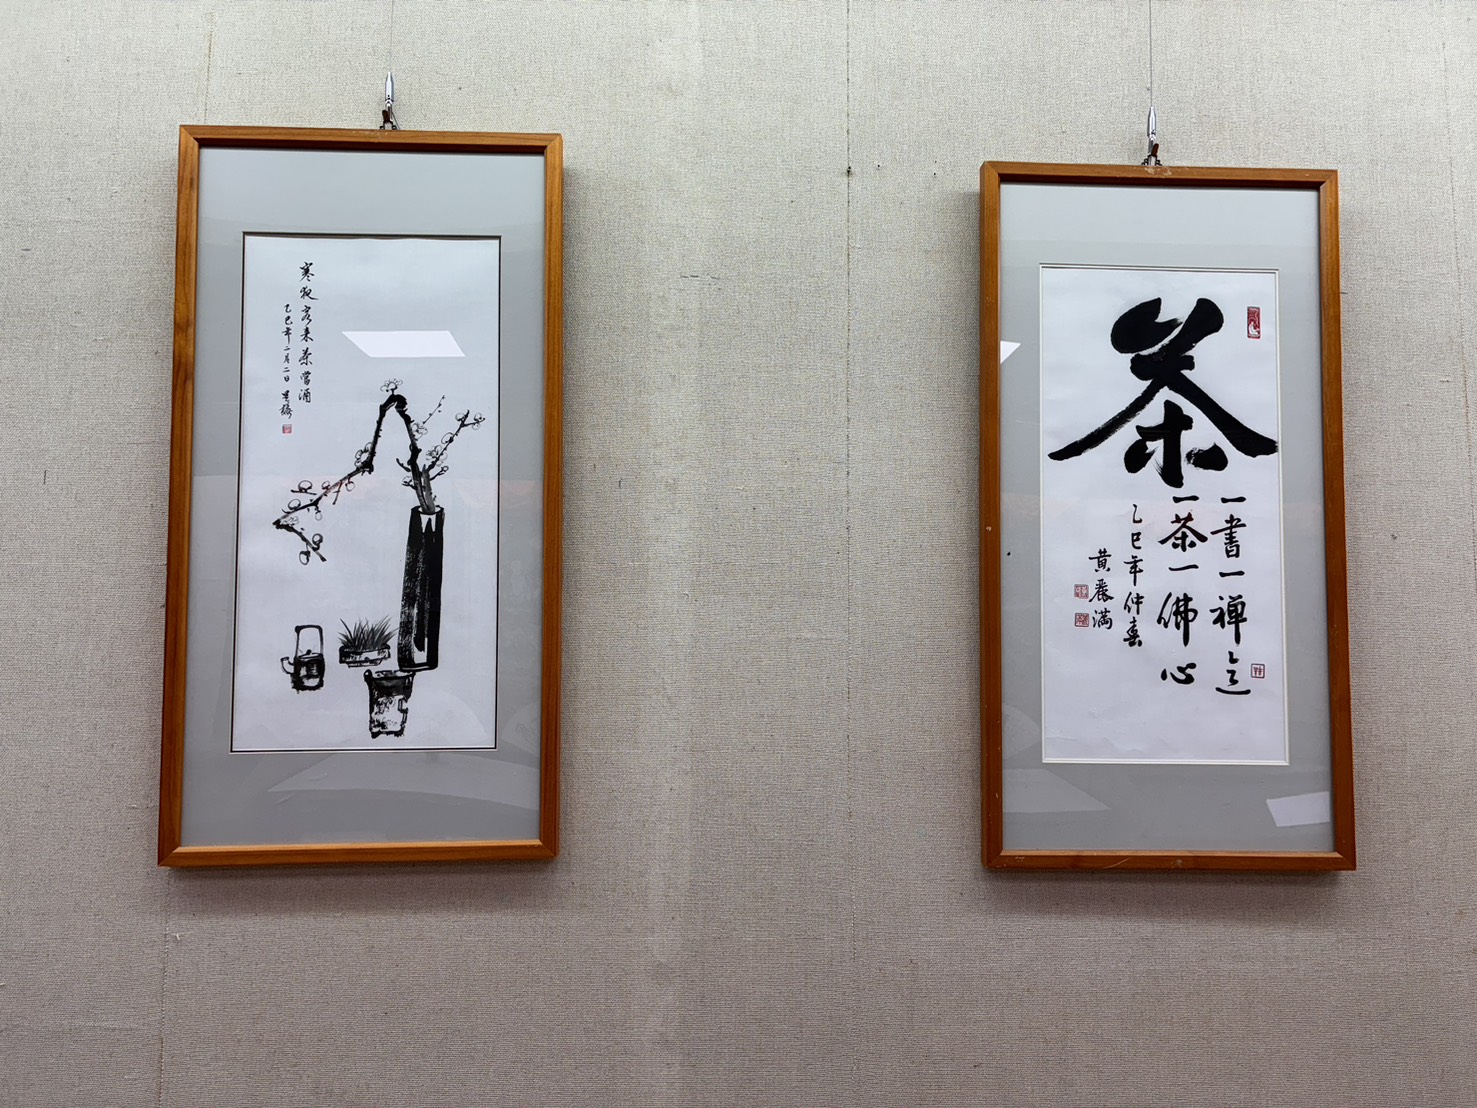 寒夜客来茶當酒
乙巳年二月二日
茶
一書一禅意
一茶一佛心
乙巳年仲春
黃 滿